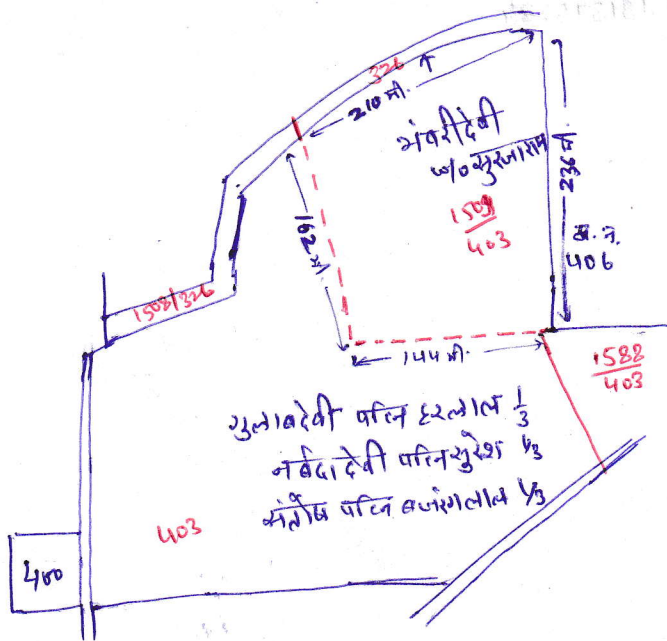 326
210 मी.
भंवरीदेवी
w/o सुरजाराम
236 मी.
162 मी.
403
ख. नं.
406
1508/326
144 मी.
1588
403
गुलाबदेवी पत्नि हरलाल 1/3
नर्बदादेवी पत्नि सुरेश 1/3
संतोष पत्नि बजरंगलाल 1/3
403
400